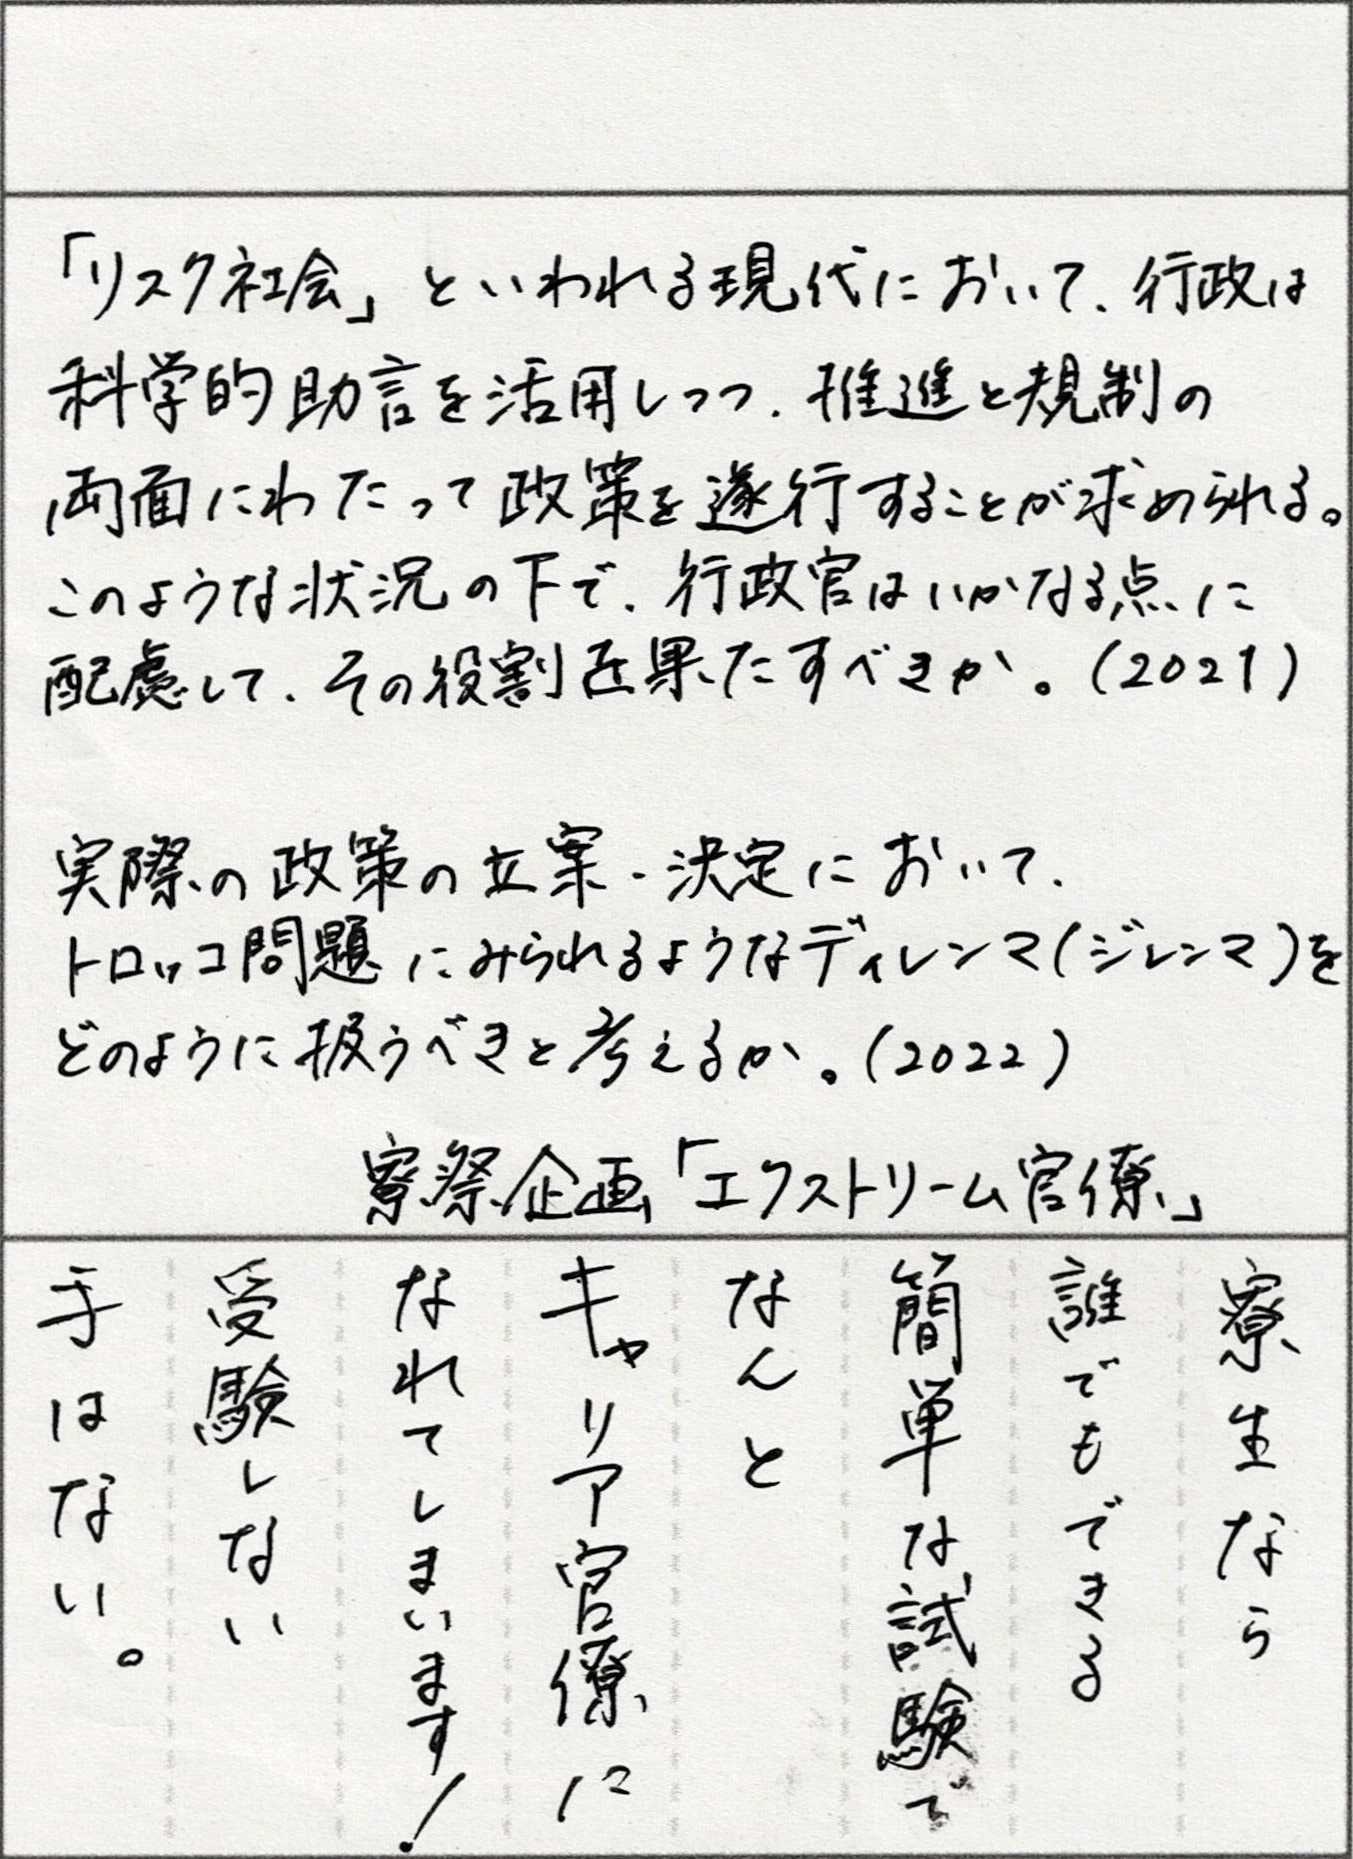 「リスク社会」といわれる現代において、行政は
科学的助言を活用しつつ、推進と規制の
両面にわたって政策を遂行することが求められる。
このような状況の下で、行政官はいかなる点に
配慮して、その役割を果たすべきか。(2021)
実際の政策の立案・決定において、
トロッコ問題にみられるようなディレンマ(ジレンマ)を
どのように扱うべきと考えるか。(2022)
寮祭企画「エクストリーム官僚」
寮生なら
誰でもできる
簡単な試験で
なんと
キャリア官僚に
なれてしまいます!
受験しない
手はない。